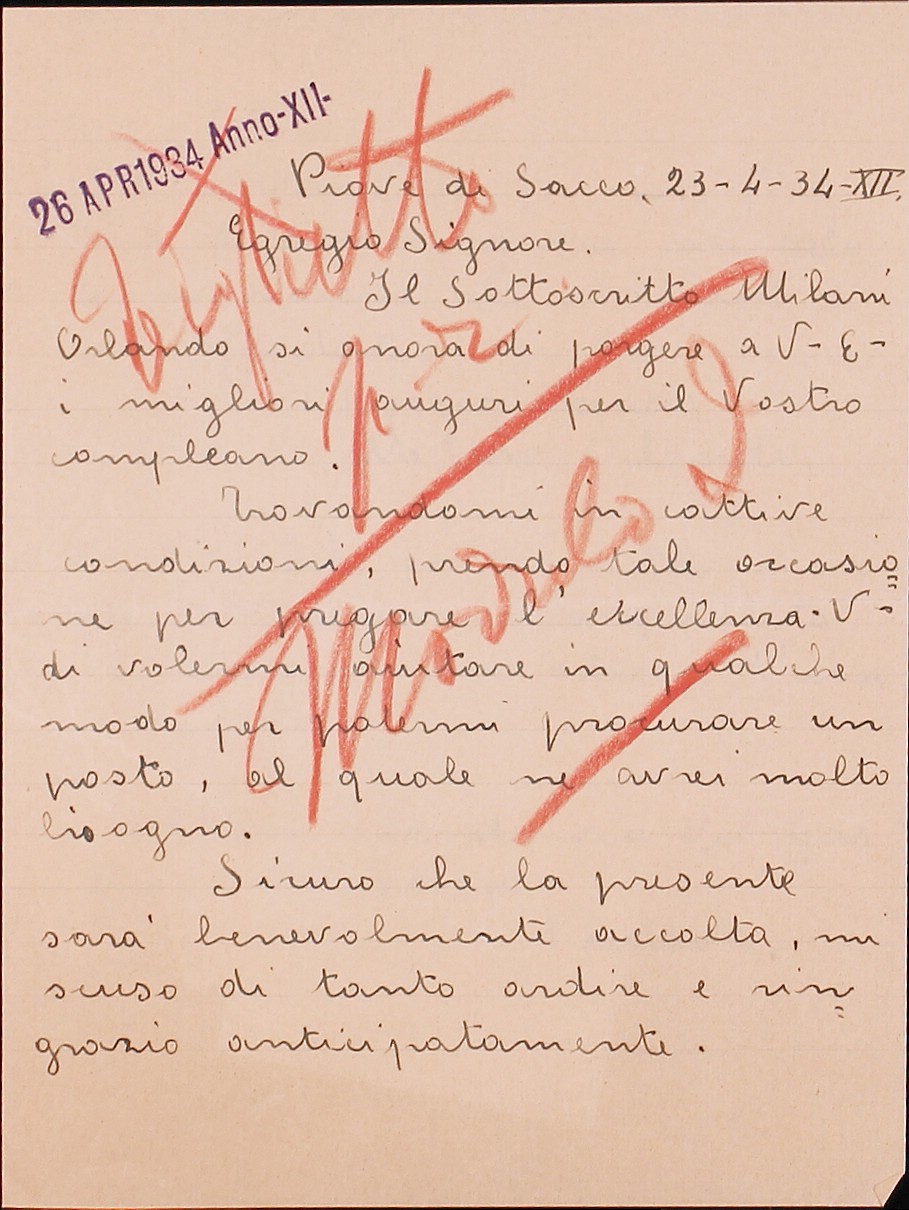 26 APR 1934 Anno-XII-
Piove di Sacco, 23-4-34-XII.
Egregio Signore.
Il Sottoscritto Milani
Orlando si onora di porgere a V- E-
i migliori auguri per il Vostro
compleano.
Trovandomi in cattive
condizioni, prendo tale occasio
ne per pregare l' excellenza. V-
di volermi aiutare in qualche
modo per potermi procurare un
posto, al quale ne avrei molto
bisogno.
Sicuro che la presente
sara' benevolmente accolta, mi
scuso di tanto ardire e rin
grazio anticipatamente.